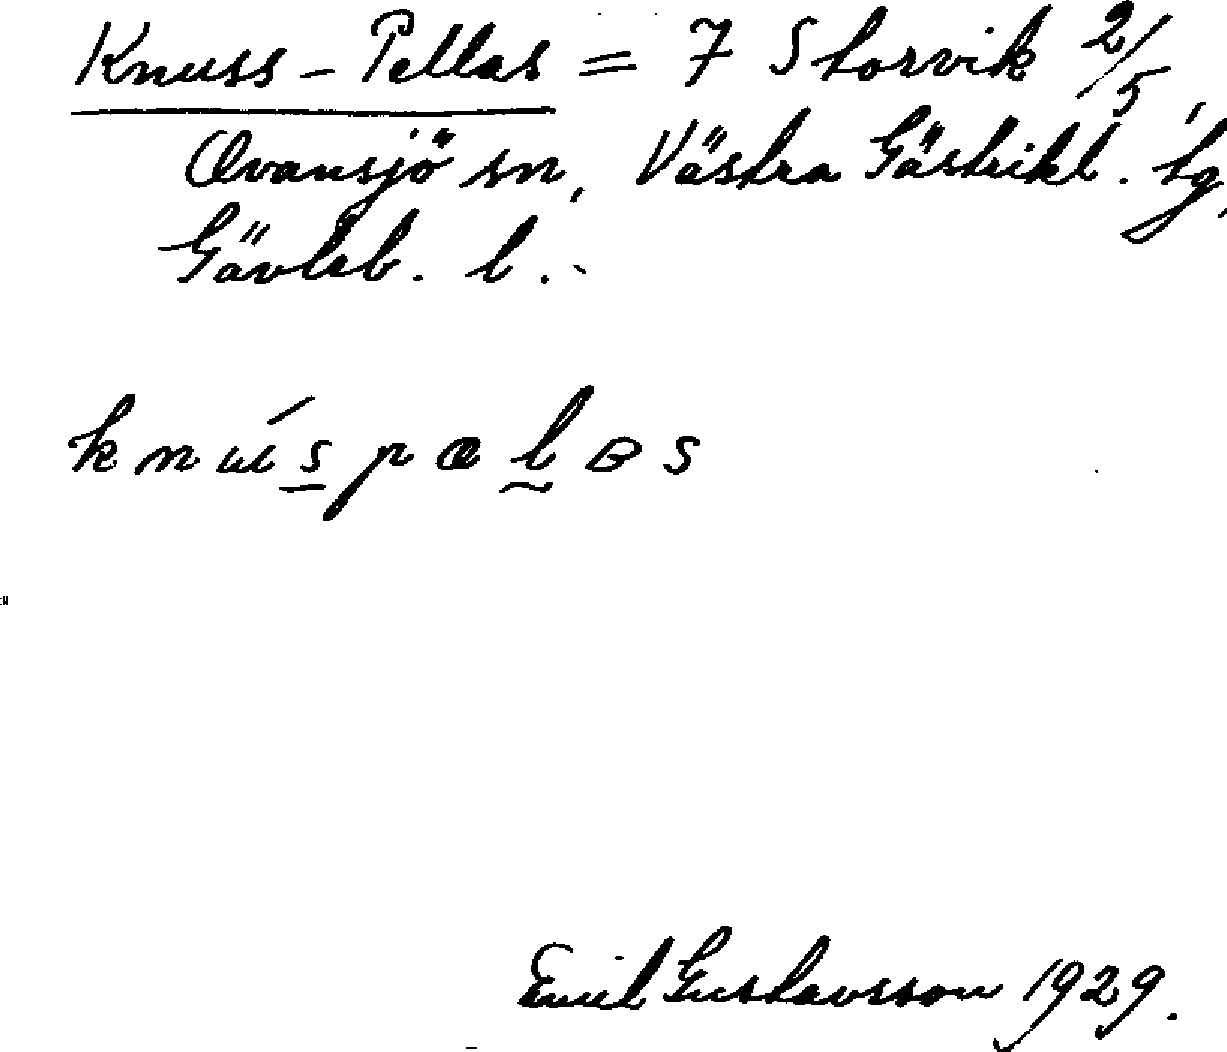 Knuss-Pellas = 7 Storvik 2/5,
Ovansjö sn, Västra Gästrikl. tg,
Gävleb. l.
knús pæl ɐs
Emil Gustavsson 1929.